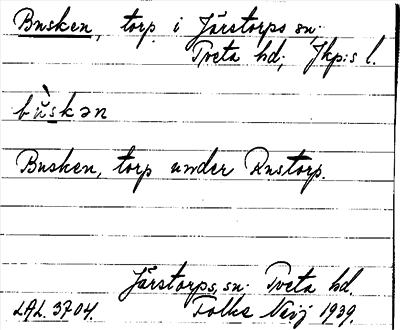 Busken, torp i Järstorps sn;
Tveta hd; Jkp:s l.
bùskən
Busken, torp under Rustorp.
Järstorps sn. Tveta hd.
LAL. 3704. Folke 1939.